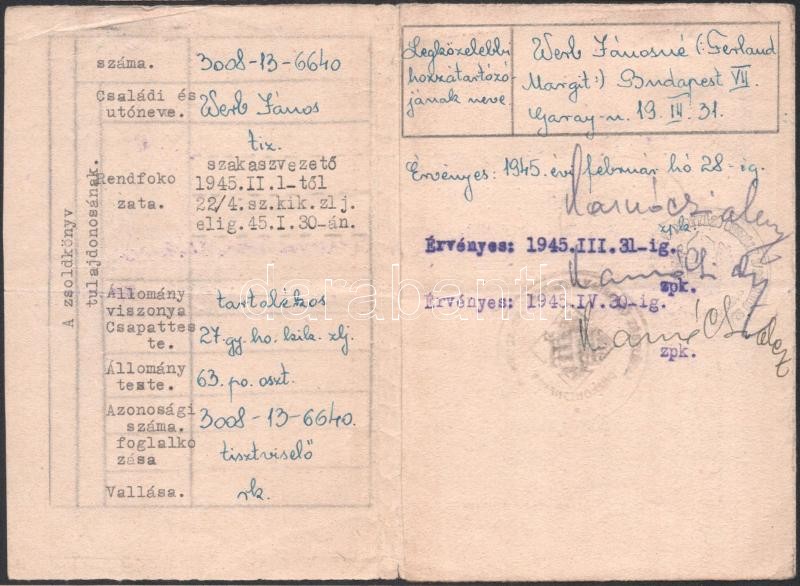 A zsoldkönyv
tulajdonosának.
száma. 3008-13-6640
Családi és
utóneve. Werb János
Rendfoko
zata.
tix.
szakaszvezető
1945.II.1-től
22/4.sz.kik.zlj.
elig.45.I.30-án.
Állomány
viszonya tartalékos
Csapattes
te. 27. gy. ho. kik. zlj.
Állomány
teste. 63. po. oszt.
Azonosági
száma. 3008-13-6640.
foglalko
zása tisztviselő
Vallása. rk.
Legközelebbi
hozzátartozó-
jának neve.
Werb Jánosné (:Ferland
Margit:) Budapest VII.
Garay-u. 19 III. 31.
Érvényes: 1945. évi február hó 28-ig.
zpk.
Érvényes: 1945.III.31-ig.
zpk.
Érvényes: 1945.IV.30-ig.
zpk.
darabanth